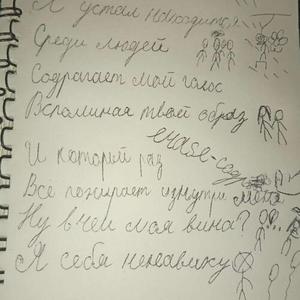 Я устал находится
Среди людей
Содрагает мой голос
Вспоминая твой образ
erase-
И который раз
Всё пожирает изнутри меня
Ну в чем моя вина?
Я себя ненавижу